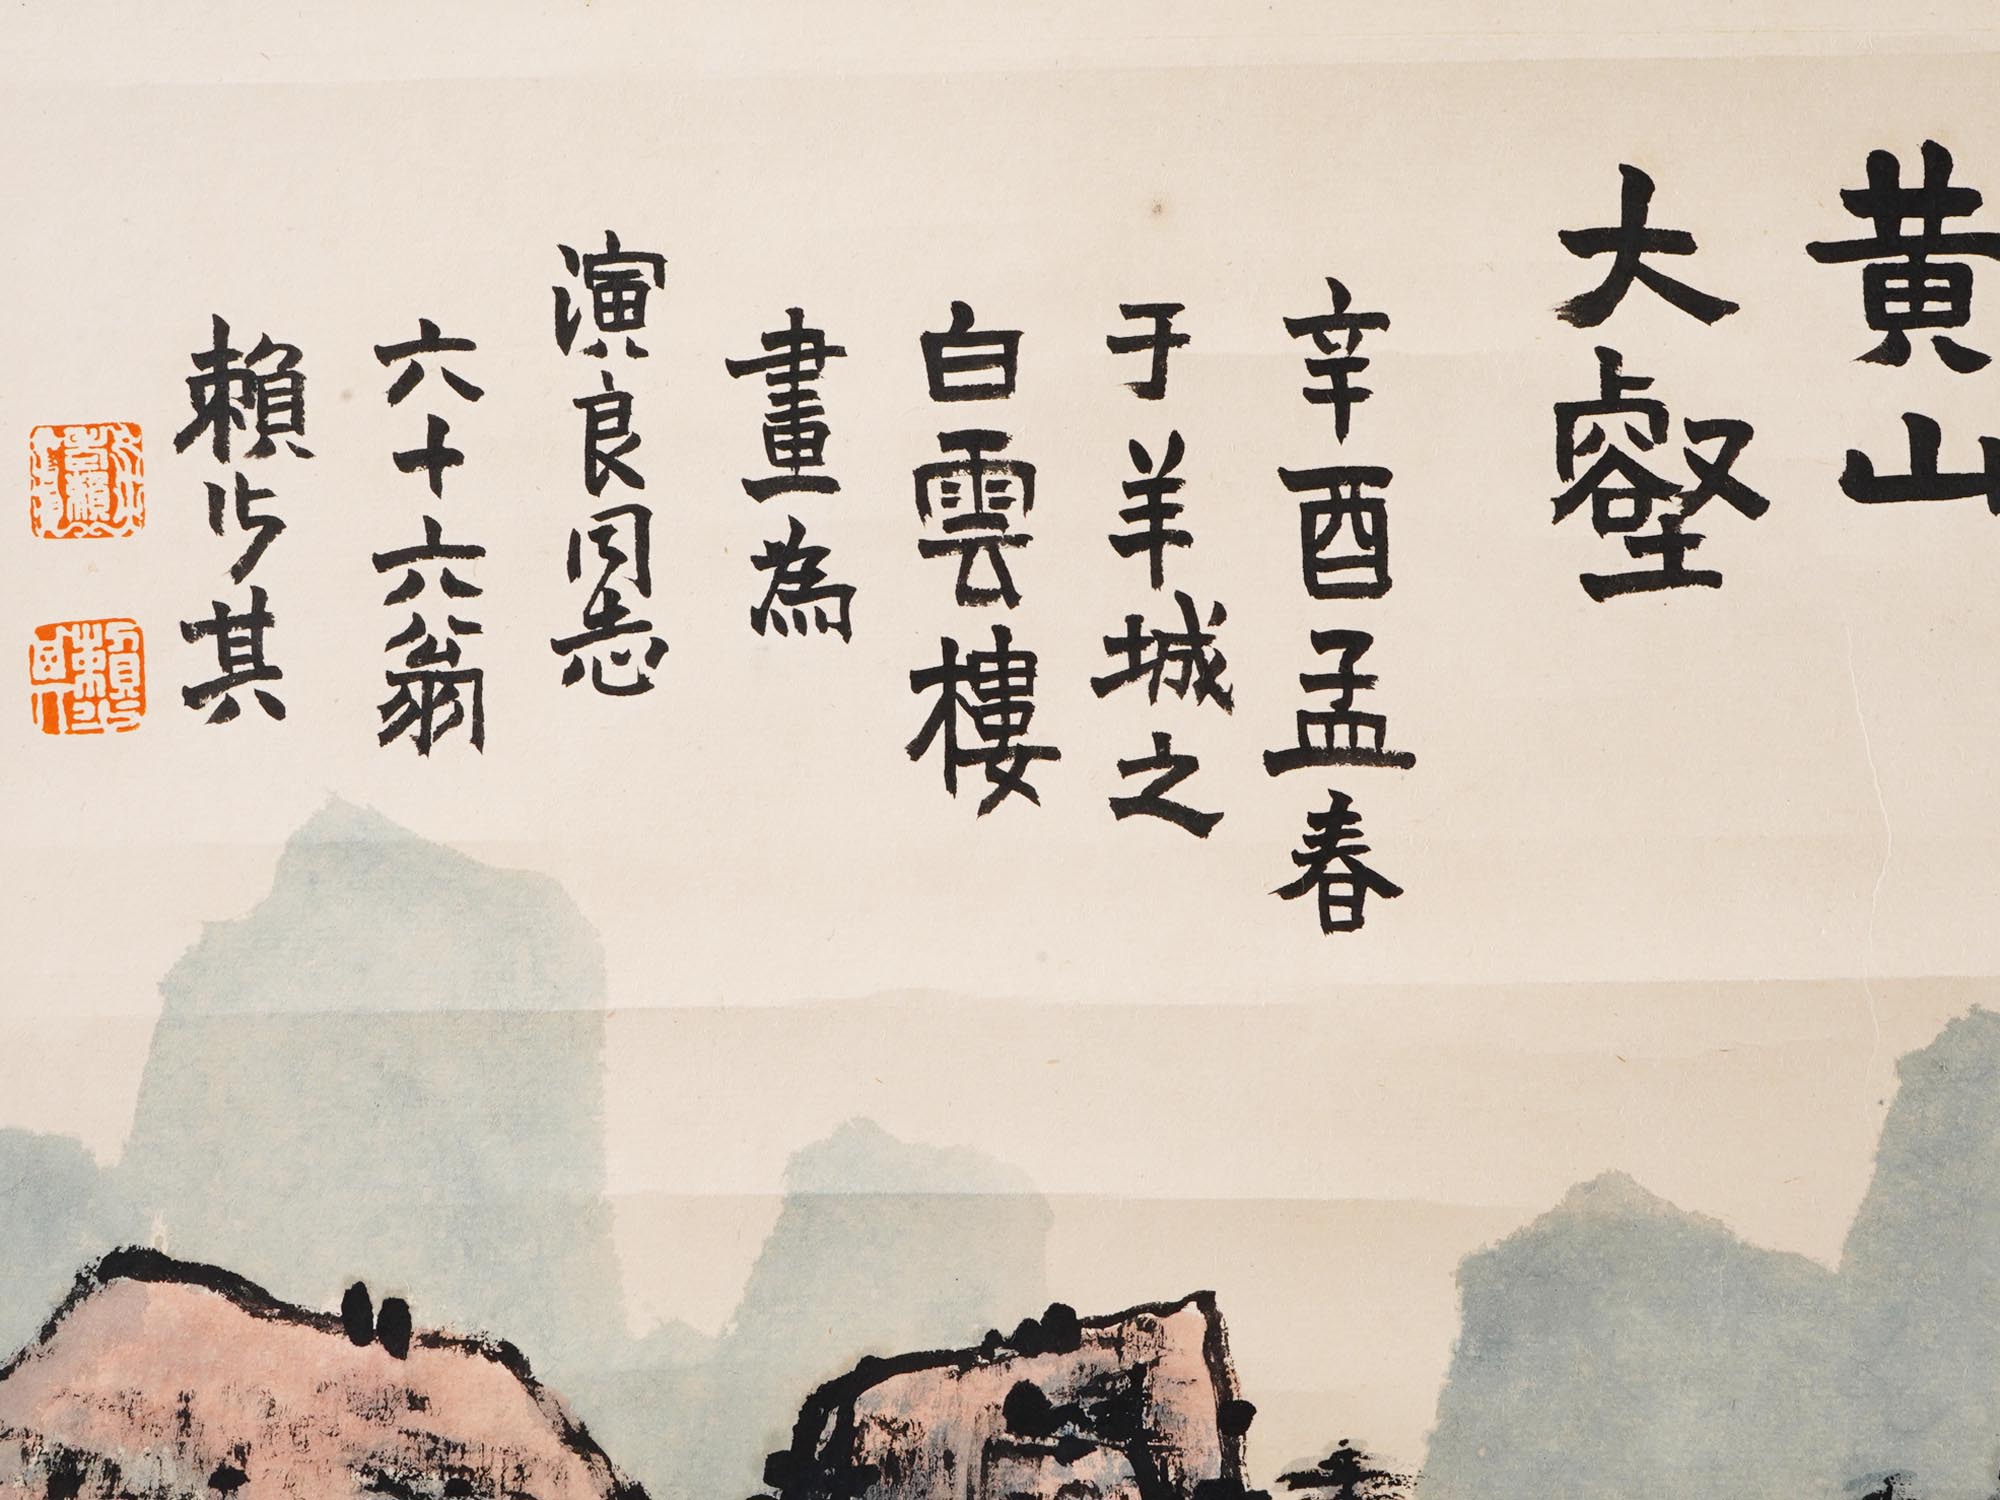 黄山
大壑
辛酉孟春
于羊城之
白雲樓
畫為
演良同志
六十六翁
賴少其